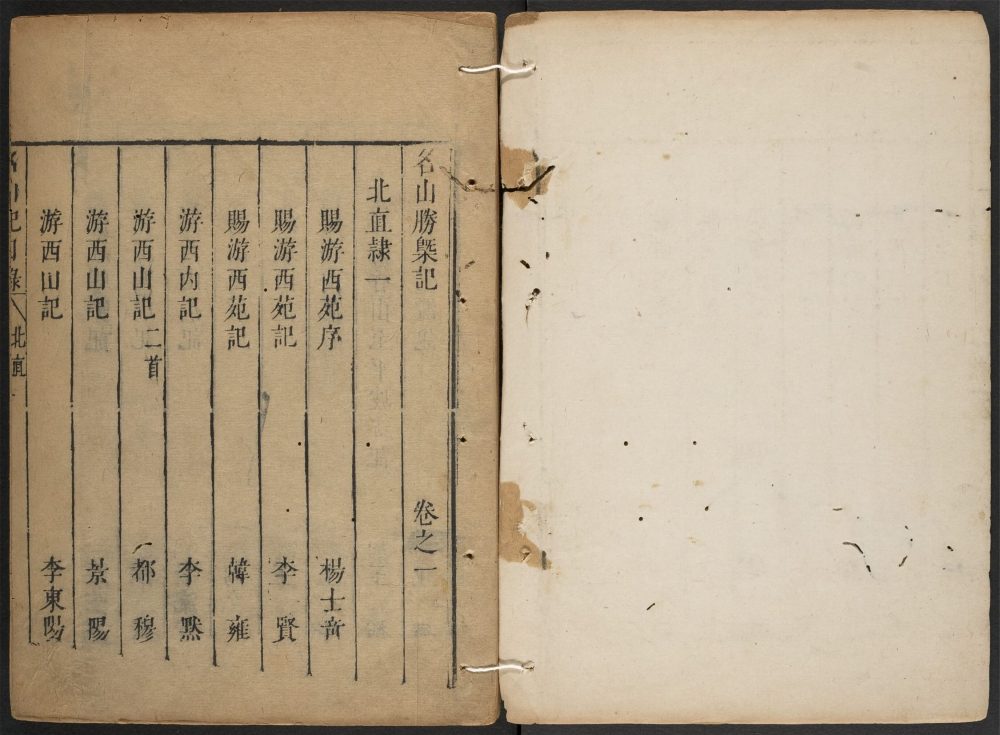 名山勝槩記 卷之一
北直隷一
賜游西苑序 楊士奇
賜游西苑記 李賢
賜游西苑記 韓雍
游西内記 李默
游西山記二首 都穆
游西山記 景陽
游西山記 李東陽
名山記目錄 北直一